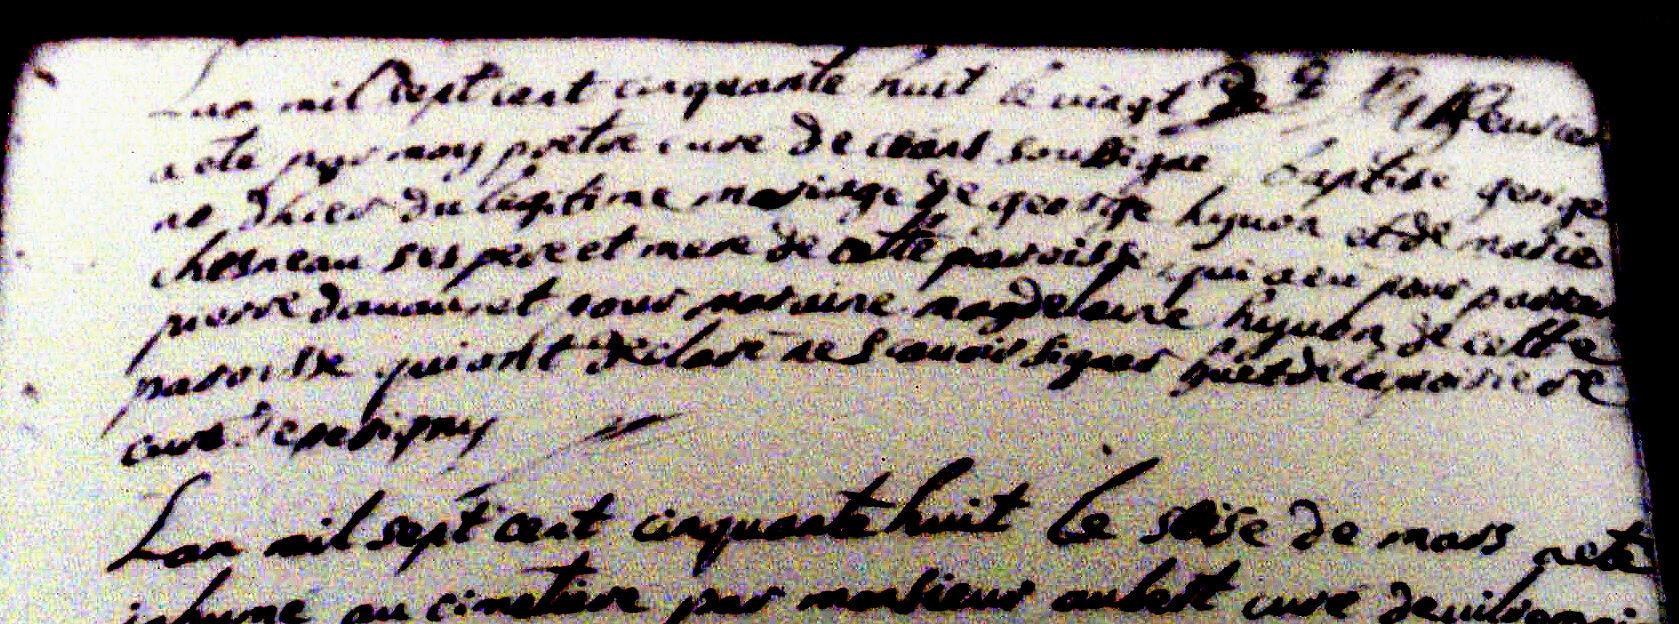 Lan mil sept cent cinquante huit le vingt de feuvrier
a ete par moy pretre cure de ceans soussigne baptise george
ne dhier du legitime mariage de george hyuon et de marie
chesneau ses pere et mere de cette paroisse qui a eu pour parein
pierre et pour maraine magdelaine hyuon de cette
paroisse qui ont declare ne scauoir signer
cure de
Lan mil sept cent cinquante huit le seise de mars a ete
inhume au cimetiere par monsieur aubert cure de